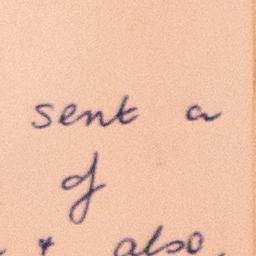 sent a
of
* also